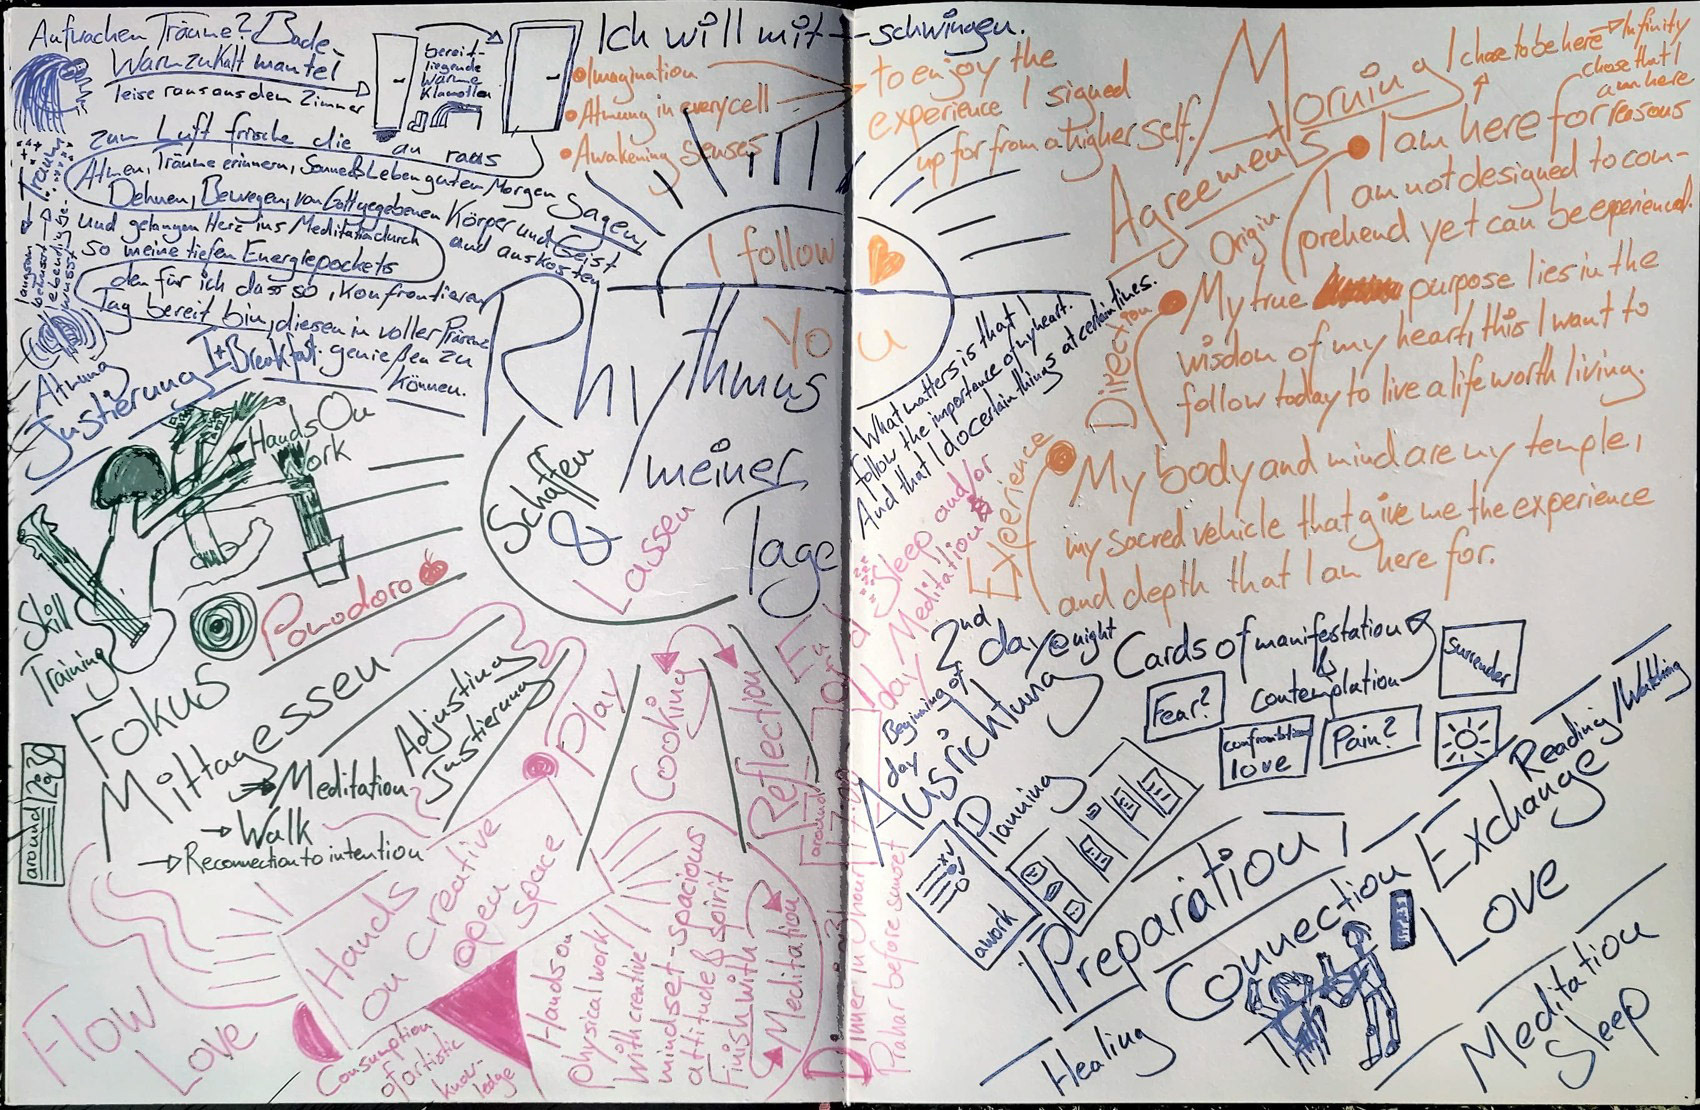 Aufwachen Träume? Bade-
Warm zu Kalt mantel
leise raus aus dem Zimmer
bereit-
liegende
Wärme
Klamotten
zum Luft frische die
an raus
Atmen, Träume erinnern, Sonne & Leben guten Morgen sagen,
Dehnen, Bewegen, von Gott gegebenen Körper und Geist
und auskosten
und gelangen Herz ins Meditation durch
so meine tiefen Energiepockets
den für ich dass so, Konfrontieren
Tag bereit bin, diesen in voller Präsenz
genießen zu
können.
1st Breakfast
Träume
langsam
behutsam
lebendig
bewusst
Atmung
Justierung
Ich will mit-schwingen.
• Imagination
• Atmung in every cell
• Awakening senses
to enjoy the
experience I signed
up for from a higher self.
I follow
Yo
u
Rhythmus
meiner
Tage
Schaffen
&
Lassen
Hands On
Work
Skill
Training
Pomodoro
Fokus
Mittagessen
→ Meditation
→ Walk
→ Reconnection to intention
Adjusting
Justierung
around 12:30
Play
Cooking
Reflection
Hands
on creative
open
space
Flow
Love
Consumption
of artistic
know-
ledge
Hands on
physical work
with creative
mindset-spacious
attitude & spirit
Finish with
Meditation
around 17:00
Dinner in 3 hour
Prahar before sunset
Morning
Agreements
I chose to be here → Infinity
chose that I
am here
• I am here for reasons
Origin
I am not designed to com-
prehend yet can be experienced.
Direction
• My true purpose lies in the
wisdom of my heart, this I want to
follow today to live a life worth living.
Experience
• My body and mind are my temple,
my sacred vehicle that give me the experience
and depth that I am here for.
What matters is that I
follow the importance of my heart.
And that I do certain things at certain times.
Sleep and/or
Meditation
2nd
day @ night
Beginning of
day
Ausrichtung
Cards of manifestation
&
contemplation
Surrender
Fear?
confrontation
love
Pain?
Planning
awork
Preparation
Reading/Watching
Exchange
Connection
Love
Healing
Meditation
Sleep